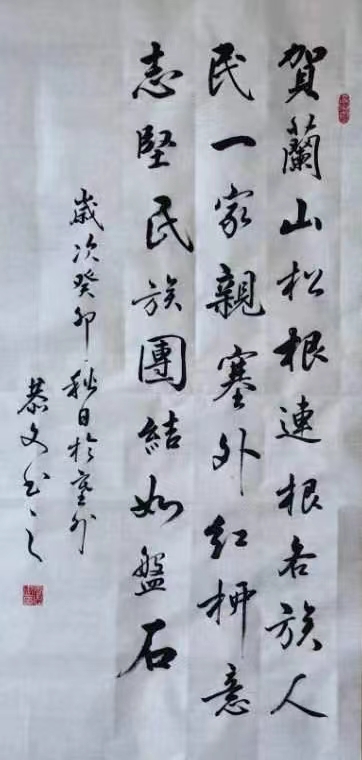 賀蘭山松根連根各族人
民一家親塞外红柳意
志堅民族團結如盤石
歲次癸卯秋日於塞外
文书之